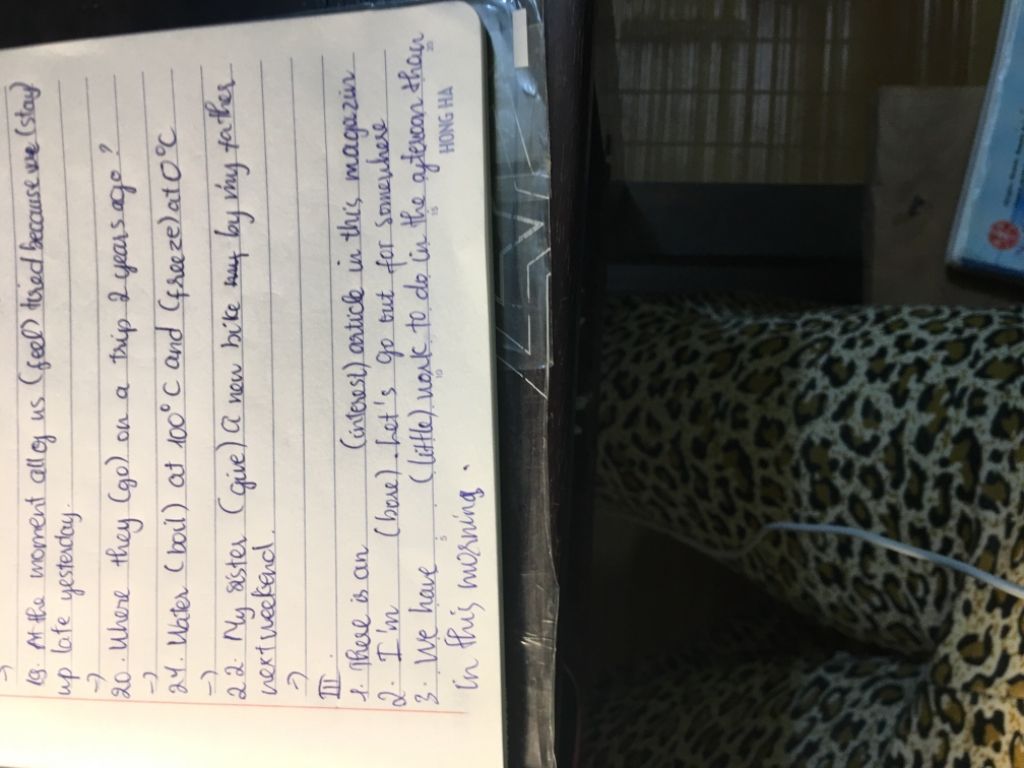 ->
19. At the moment all of us (feel) tired because we (stay)
up late yesterday.
->
20. Where they (go) on a trip 2 years ago ?
->
21. Water (boil) at 100°C and (freeze) at 0°C
->
22. My sister (give) a new bike by my father
next weekend.
->
III.
1. There is an (interest) article in this magazin
2. I'm (bore). Let's go out for somewhere
3. We have (little) work to do in the afternoon than
in this morning.
5 10 15 20
HONG HA